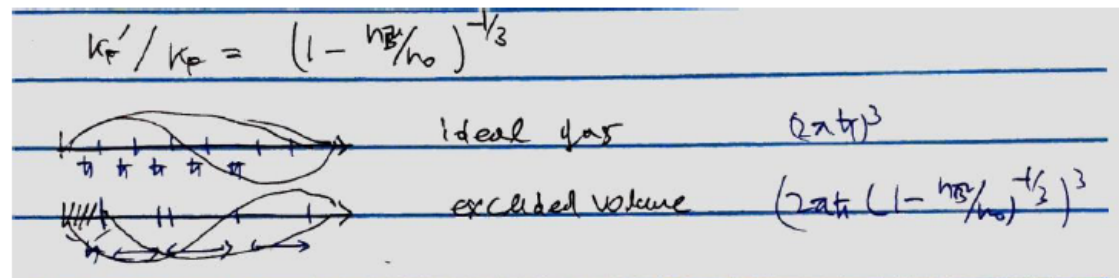 K_F' / K_F = (1 - n_B/n_0)^{-1/3}
ideal gas (2πħ)^3
ħ ħ ħ ħ ħ
excluded volume (2πħ (1 - n_B/n_0)^{-1/3})^3
ħ